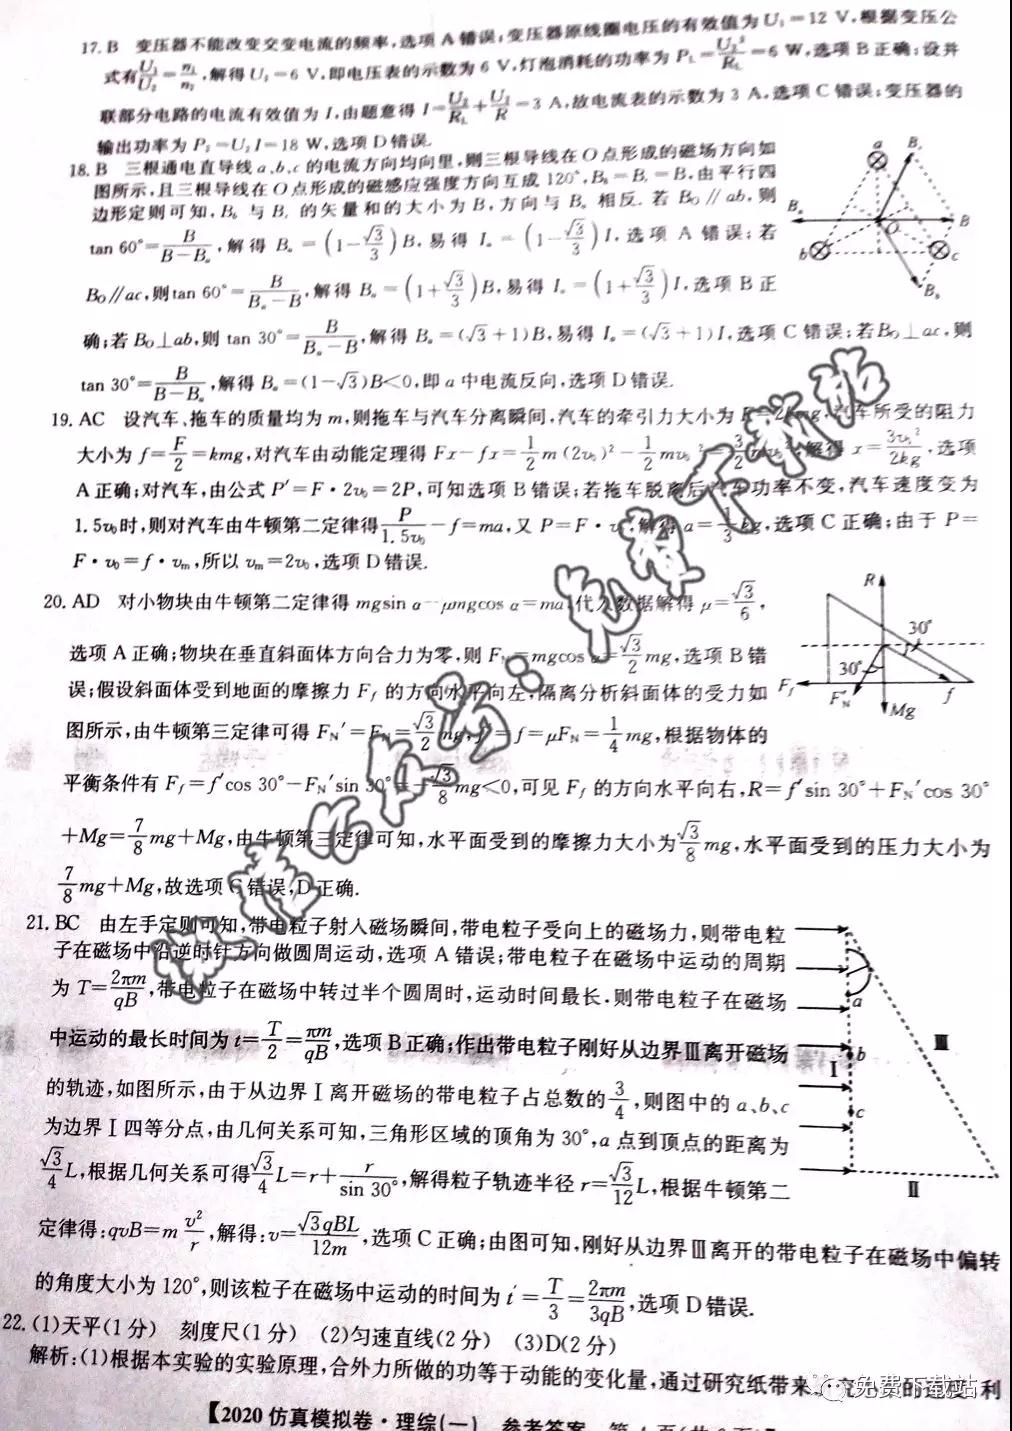 17. B 变压器不能改变交变电流的频率,选项 A 错误;变压器原线圈电压的有效值为 U₁=12 V,根据变压公
式有U₁/U₂=n₁/n₂,解得 U₂=6 V,即电压表的示数为 6 V,灯泡消耗的功率为 P_L=U₂²/R_L=6 W,选项 B 正确;设并
联部分电路的电流有效值为 I,由题意得 I=U₂/R_L+U₂/R=3 A,故电流表的示数为 3 A,选项 C 错误;变压器的
输出功率为 P₂=U₂I=18 W,选项 D 错误.
18. B 三根通电直导线 a、b、c 的电流方向均向里,则三根导线在 O 点形成的磁场方向如
图所示,且三根导线在 O 点形成的磁感应强度方向互成 120°,B_b=B_c=B,由平行四
边形定则可知,B_b 与 B_c 的矢量和的大小为 B,方向与 B_a 相反.若 B_O∥ab,则
tan 60°=B/(B-B_a),解得 B_a=(1-√3/3)B,易得 I_a=(1-√3/3)I,选项 A 错误;若
B_O∥ac,则 tan 60°=B/(B_a-B),解得 B_a=(1+√3/3)B,易得 I_a=(1+√3/3)I,选项 B 正
确;若 B_O⊥ab,则 tan 30°=B/(B_a-B),解得 B_a=(√3+1)B,易得 I_a=(√3+1)I,选项 C 错误;若B_O⊥ac,则
tan 30°=B/(B-B_a),解得 B_a=(1-√3)B<0,即 a 中电流反向,选项 D 错误.
a
B_c
B_a
B
O
b
c
B_b
19. AC 设汽车、拖车的质量均为 m,则拖车与汽车分离瞬间,汽车的牵引力大小为 F=2kmg,汽车所受的阻力
大小为 f=F/2=kmg,对汽车由动能定理得 Fx-fx=1/2 m(2v₀)²-1/2 mv₀²=3/2 mv₀²,解得 x=3v₀²/2kg,选项
A 正确;对汽车,由公式 P′=F·2v₀=2P,可知选项 B 错误;若拖车脱离后汽车功率不变,汽车速度变为
1.5v₀时,则对汽车由牛顿第二定律得P/1.5v₀-f=ma,又 P=F·v₀,解得 a=1/3 kg,选项 C 正确;由于 P=
F·v₀=f·v_m,所以 v_m=2v₀,选项 D 错误.
20. AD 对小物块由牛顿第二定律得 mgsin α-μmgcos α=ma,代入数据解得 μ=√3/6,
选项 A 正确;物块在垂直斜面体方向合力为零,则 F_N=mgcos α=√3/2 mg,选项 B 错
误;假设斜面体受到地面的摩擦力 F_f 的方向水平向左,隔离分析斜面体的受力如
图所示,由牛顿第三定律可得 F_N′=F_N=√3/2 mg,f′=f=μF_N=1/4 mg,根据物体的
平衡条件有 F_f=f′cos 30°-F_N′sin 30°=-√3/8 mg<0,可见 F_f 的方向水平向右,R=f′sin 30°+F_N′cos 30°
+Mg=7/8 mg+Mg,由牛顿第三定律可知,水平面受到的摩擦力大小为√3/8 mg,水平面受到的压力大小为
7/8 mg+Mg,故选项 C 错误,D 正确.
R
30°
30°
F_f
F_N′
f
Mg
21. BC 由左手定则可知,带电粒子射入磁场瞬间,带电粒子受向上的磁场力,则带电粒
子在磁场中沿逆时针方向做圆周运动,选项 A 错误;带电粒子在磁场中运动的周期
为 T=2πm/qB,带电粒子在磁场中转过半个圆周时,运动时间最长.则带电粒子在磁场
中运动的最长时间为 t=T/2=πm/qB,选项 B 正确;作出带电粒子刚好从边界Ⅲ离开磁场
的轨迹,如图所示,由于从边界Ⅰ离开磁场的带电粒子占总数的3/4,则图中的 a、b、c
为边界Ⅰ四等分点,由几何关系可知,三角形区域的顶角为 30°,a 点到顶点的距离为
√3/4 L,根据几何关系可得√3/4 L=r+r/sin 30°,解得粒子轨迹半径 r=√3/12 L,根据牛顿第二
定律得:qvB=m v²/r,解得:v=√3qBL/12m,选项 C 正确;由图可知,刚好从边界Ⅲ离开的带电粒子在磁场中偏转
的角度大小为 120°,则该粒子在磁场中运动的时间为 t′=T/3=2πm/3qB,选项 D 错误.
a
b
c
Ⅰ
Ⅱ
Ⅲ
22. (1)天平(1分) 刻度尺(1分) (2)匀速直线(2分) (3)D(2分)
解析:(1)根据本实验的实验原理,合外力所做的功等于动能的变化量,通过研究纸带来 的速度 利
【2020 仿真模拟卷·理综(一) 参考答案
免费下载站